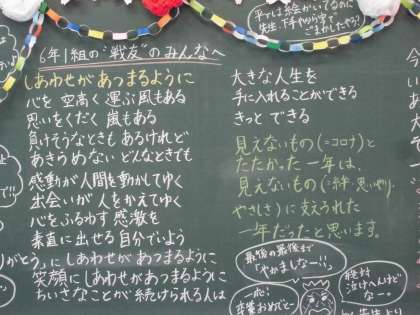 アレは絵がかいてるのに
先生、下手やから字で
ごまかしたやろ!
6年1組の"戦友"のみんなへ
しあわせがあつまるように
心を 空高く 運ぶ風もある
思いをくだく 嵐もある
負けそうなときも あるけれど
あきらめない どんなときでも
感動が人間を動かしてゆく
出会いが 人を かえてゆく
心をふるわす 感激を
素直に出せる 自分でいよう
りがとう。に しあわせがあつまるように
笑顔に しあわせがあつまるように
ちいさなことが 続けられる人は
大きな人生を
手に入れることができる
きっと できる
見えないもの(=コロナ)と
たたかった 一年は、
見えないもの(=絆・思いやり・
やさしさ)に支えられた
一年だったと思います。
最後の最後まで
「やかましなー!!」
一応!
卒業おめでとー
絶対
泣けへんけど
なー。
先生より